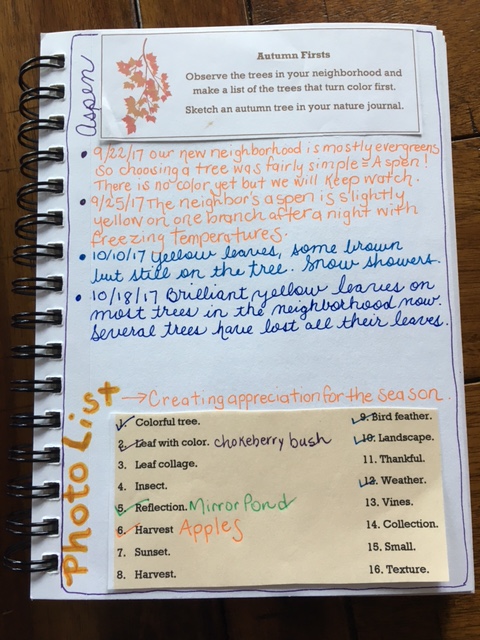 Aspen
Autumn Firsts
Observe the trees in your neighborhood and
make a list of the trees that turn color first.
Sketch an autumn tree in your nature journal.
• 9/22/17 our new neighborhood is mostly evergreens
so choosing a tree was fairly simple = Aspen!
There is no color yet but we will keep watch.
• 9/25/17 The neighbor's aspen is slightly
yellow on one branch after a night with
freezing temperatures.
• 10/10/17 yellow leaves, some brown
but still on the tree. Snow showers.
• 10/18/17 Brilliant yellow leaves on
most trees in the neighborhood now.
Several trees have lost all their leaves.
Photo List
→ Creating appreciation for the season.
1. Colorful tree.
2. Leaf with color. chokeberry bush
3. Leaf collage.
4. Insect.
5. Reflection. Mirror Pond
6. Harvest Apples
7. Sunset.
8. Harvest.
9. Bird feather.
10. Landscape.
11. Thankful.
12. Weather.
13. Vines.
14. Collection.
15. Small.
16. Texture.